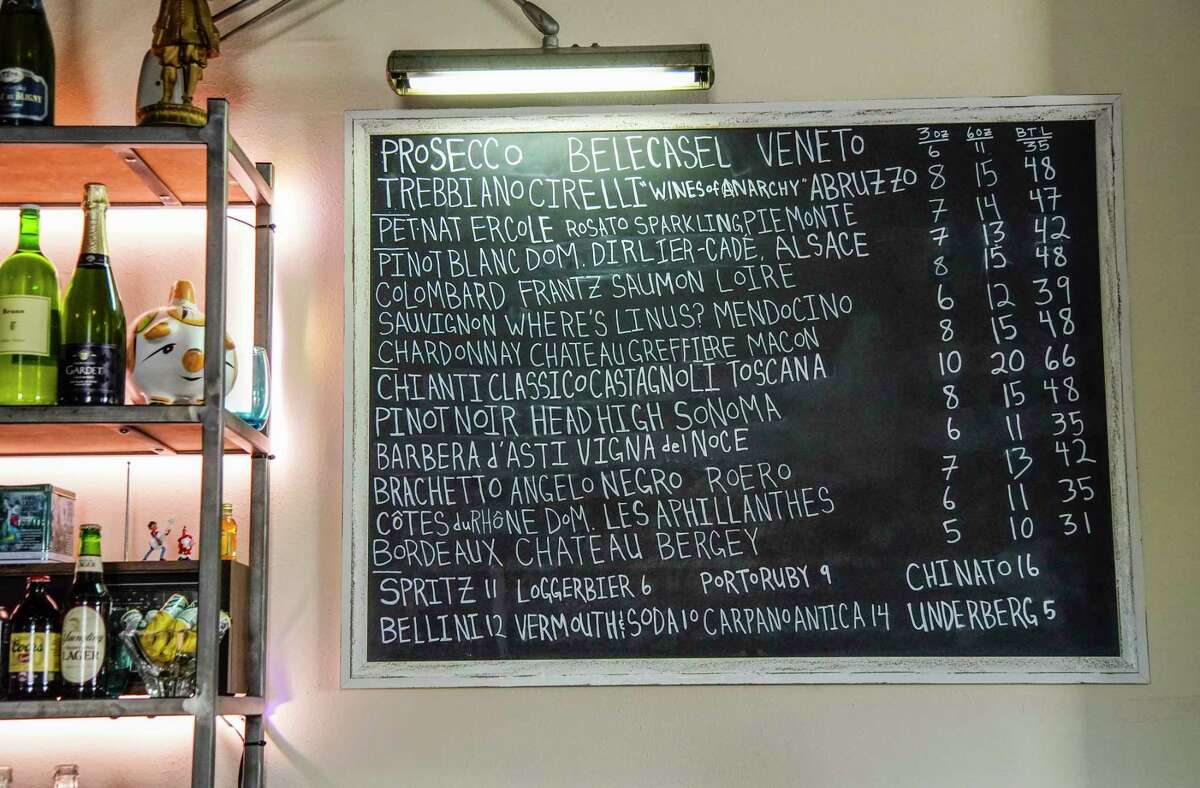 3oz 6oz BTL
PROSECCO BELECASEL VENETO 6 11 35
TREBBIANO CIRELLI "WINES of ANARCHY" ABRUZZO 8 15 48
PET-NAT ERCOLE ROSATO SPARKLING PIEMONTE 7 14 47
PINOT BLANC DOM. DIRLIER-CADÉ, ALSACE 7 13 42
COLOMBARD FRANTZ SAUMON LOIRE 8 15 48
SAUVIGNON WHERE'S LINUS? MENDOCINO 6 12 39
CHARDONNAY CHATEAU GREFFIERE MACON 8 15 48
CHIANTI CLASSICO CASTAGNOLI TOSCANA 10 20 66
PINOT NOIR HEAD HIGH SONOMA 8 15 48
BARBERA d'ASTI VIGNA del NOCE 6 11 35
BRACHETTO ANGELO NEGRO ROERO 7 13 42
CÔTES du RHÔNE DOM. LES APHILLANTHES 6 11 35
BORDEAUX CHATEAU BERGEY 5 10 31
SPRITZ 11 LOGGERBIER 6 PORTO RUBY 9 CHINATO 16
BELLINI 12 VERMOUTH & SODA 10 CARPANO ANTICA 14 UNDERBERG 5
DE BLIGNY
Brunn
GARDET
Coors
Yuengling
LAGER